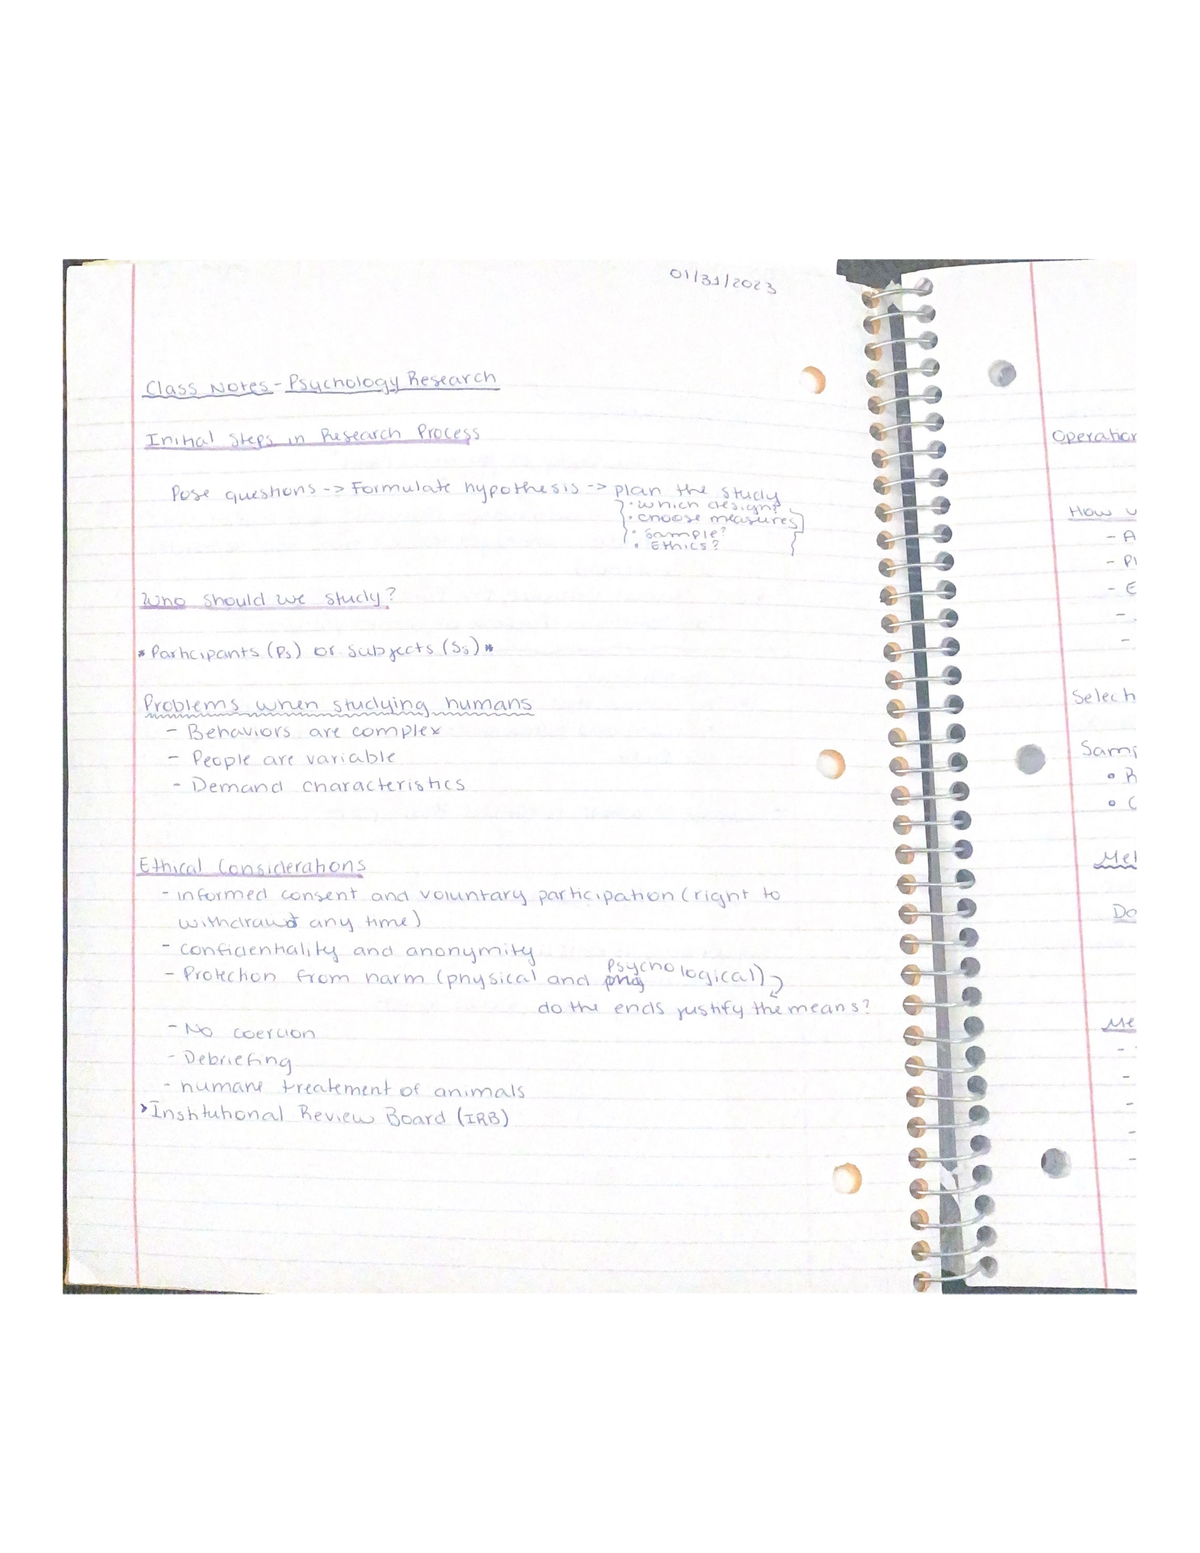 01/31/2023
Class Notes - Psychology Research
Initial Steps in Research Process
Pose questions -> Formulate hypothesis -> plan the study
• which design?
• choose measures
• Sample?
• Ethics?
Who should we study?
* Participants (Ps) or subjects (Ss) *
Problems when studying humans
- Behaviors are complex
- People are variable
- Demand characteristics
Ethical Considerations
- informed consent and voluntary participation (right to
withdraw any time)
- confidentiality and anonymity
- Protection from harm (physical and psychological)
do the ends justify the means?
- No coercion
- Debriefing
- humane treatement of animals
> Institutional Review Board (IRB)
Operation
How
- A
- Pl
- E
-
-
Select
Samp
• R
• C
Met
Do
Me
-
-
-
-
-